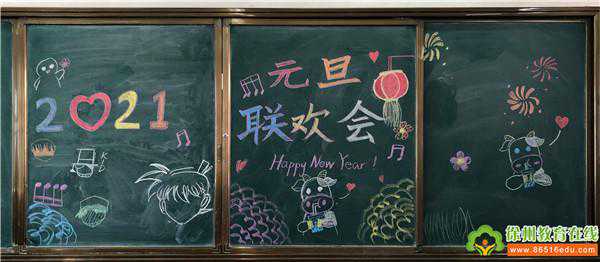 2021
元旦
联欢会
Happy New Year!
徐州教育在线
www.86516edu.com